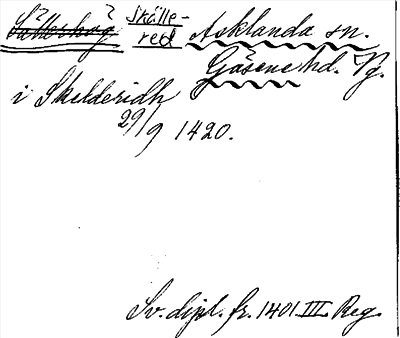 Sätterhog Skälle-
red Asklanda sn.
Gäsene hd. Vg.
i Skelderidh
29/9 1420.
Sv. dipl. fr. 1401 III Reg.